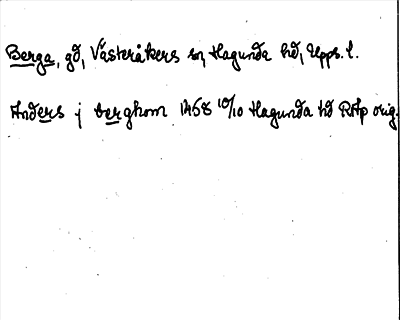 Berga, gd, Västeråkers sn, Hagunda hd, Upps. l.
Anders j berghom 1468 10/10 Hagunda hd RAp orig.